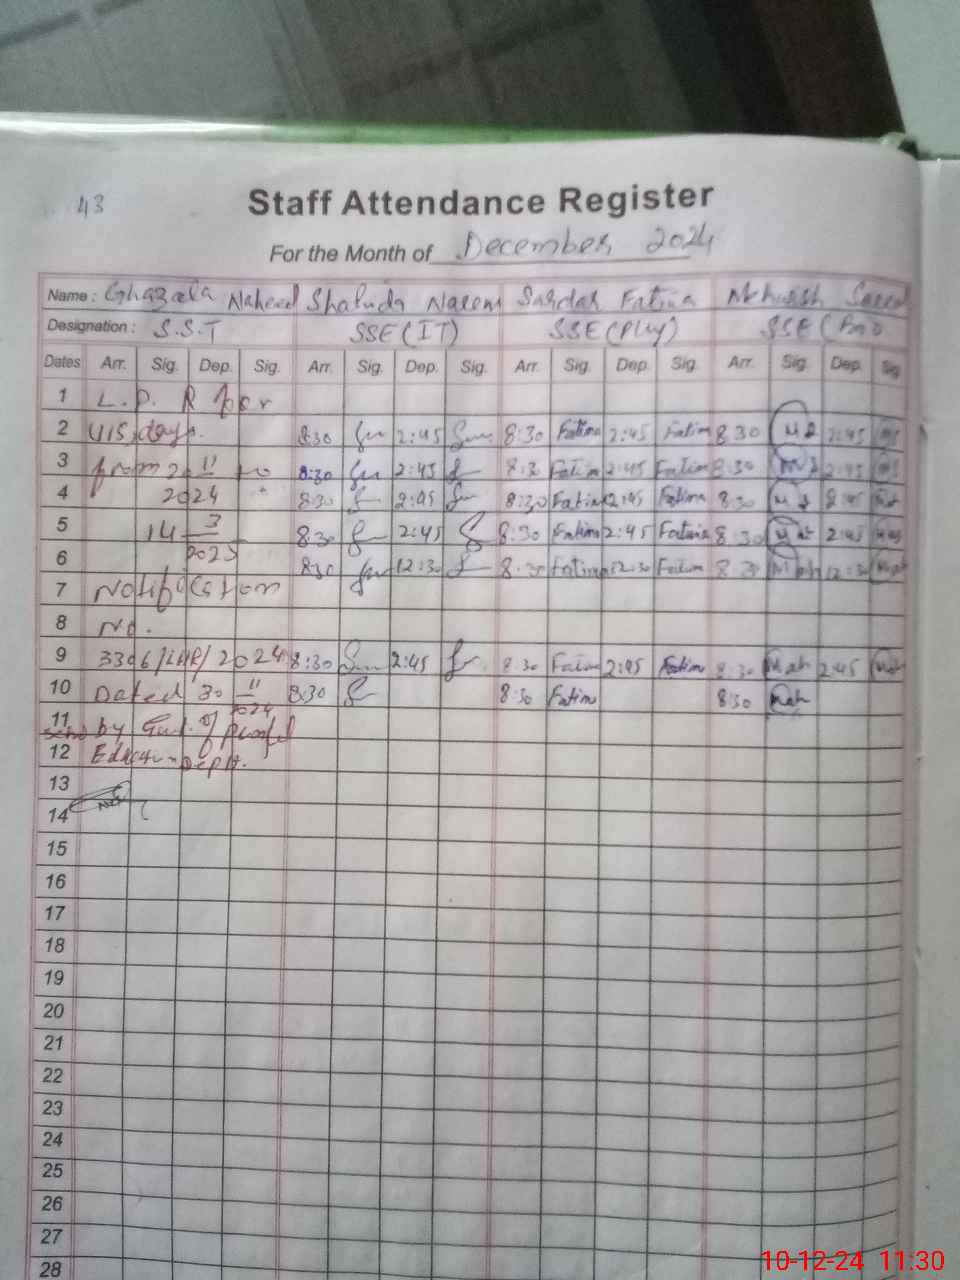 43
Staff Attendance Register
For the Month of December 2024
Name : Ghazala Naheed Shahida Nasem Sardar Fatima
Designation : S.S.T SSE (IT) SSE (Phy) SSE (
Dates Arr. Sig. Dep. Sig. Arr. Sig. Dep. Sig. Arr. Sig. Dep. Sig. Arr. Sig. Dep. Sig.
1 L.P.R for
2 days. 8:30 2:45 8:30 Fatima 2:45 Fatim 8:30 2:45
3 from 20 11 to 8:30 2:45 8:30 Fatima 2:45 Fatima 8:30 2:45
4 2024 8:30 2:45 8:30 Fatima 2:45 Fatima 8:30 2:45
5 14 3 8:30 2:45 8:30 Fatima 2:45 Fatima 8:30 2:45
2025
6 8:30 12:30 8:30 Fatima 12:30 Fatima 8:30 Mah 12:30 Mah
7 Notification
8 No.
9 3306/LHR/2024 8:30 2:45 8:30 Fatima 2:45 Fatim 8:30 Mah 2:45 Mah
10 Dated 30 11 8:30 8:30 Fatim 8:30 Mah
2024
11 by Govt. of Punjab
12 Education Deptt.
13
14
15
16
17
18
19
20
21
22
23
24
25
26
27
28
10-12-24 11:30